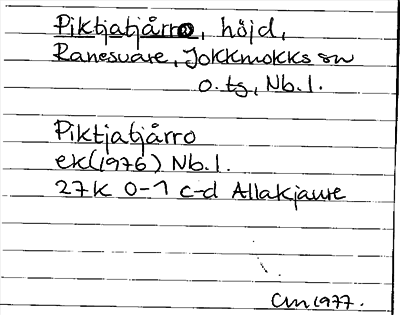 Piktjatjårro, höjd,
Ranesvare, Jokkmokks sn
o. tg, Nb.l.
Piktjatjårro
ek(1976) Nb.l.
27K 0-1 c-d Allakjaure
CM 1977.